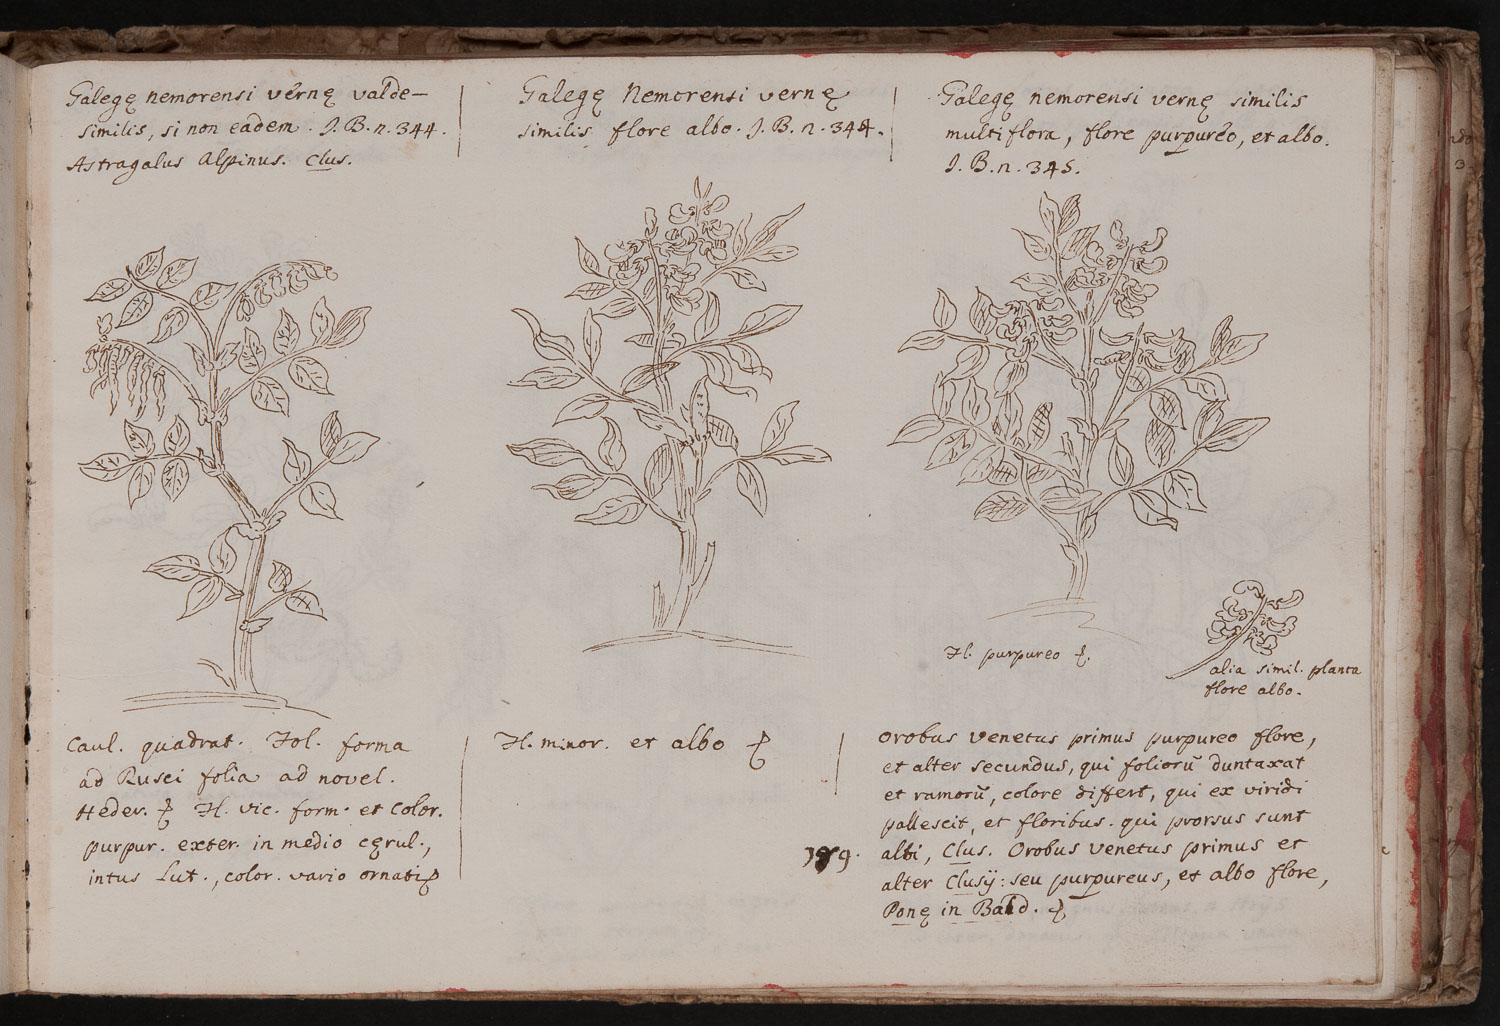 Galegę nemorensi vernę valde-
similis, si non eadem. J. B. n. 344.
Astragalus Alpinus. Clus.
Galegę Nemorensi vernę
similis flore albo. J. B. n. 344.
Galegę nemorensi vernę similis
multiflora, flore purpureo, et albo.
J. B. n. 345.
Fl. purpureo
alia simil. planta
flore albo.
Caul. quadrat. Fol. forma
ad Rusci folia ad novel.
Heder. Fl. vic. form. et color.
purpur. exter. in medio cęrul.,
intus Lut., color. vario ornati
Fl. minor. et albo
Orobus venetus primus purpureo flore,
et alter secundus, qui foliorū duntaxat
et ramorū, colore differt, qui ex viridi
pallescit, et floribus. qui prorsus sunt
albi, Clus. Orobus venetus primus et
alter Clusij: seu purpureus, et albo flore,
Ponę in Bald.